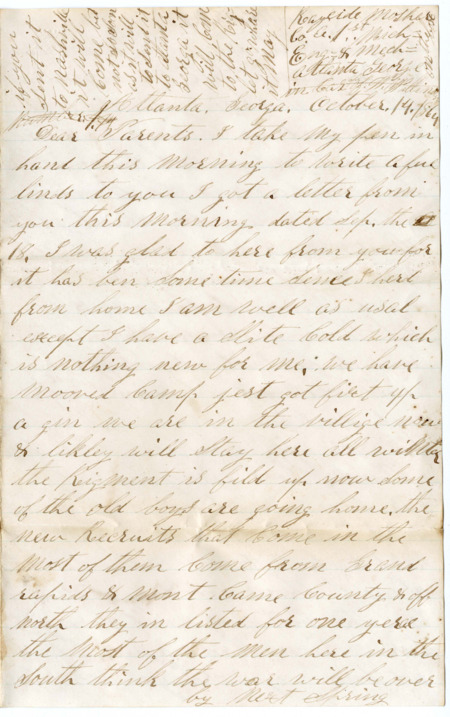 if your
sent it
to nashville
it will
come as
not soon
as it will
to send it
to atlanta
Georgia it
will come
to the
it May
Co. A. 1st Mich-
Eng- & Mech-
atlanta george
Atlanta, Georga. October, 14, 1864
Dear Parents. I take My pen in
hand this Morning to write a few
linds to you I got a letter from
you this Morning dated Sep. the
18. I was glad to here from you for
it has ben some time since I herd
from home I am well as usal
except I have a slite Cold which
is nothing new for me; we have
Mooved Camp jest got fixt up
a gin we are in the villige now
& likley will stay here all winter
the Regment is fild up now some
of the old boys are going home, the
new Recruits that Come in the
Most of them Come from Grand
rapids & Mont Came County & off
north they in listed for one yere
the Most of the Men here in the
South think the war will be over
by Next Spring